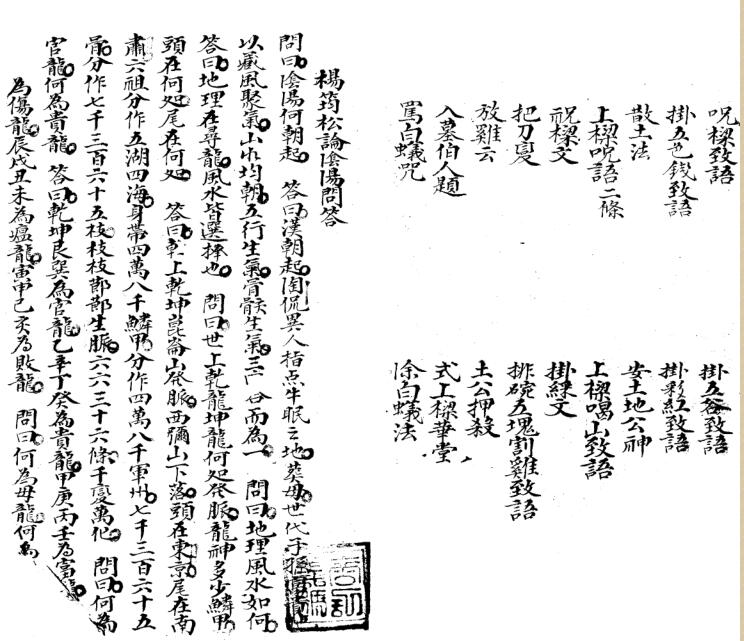 呪樑致語
掛五谷致語
掛五色錢致語
掛彩紅致語
散土法
安土地公神
上樑呪語二條
上樑喝山致語
祝樑文
掛綵文
把刀变
排碗五塊割雞致語
放雞云
土公押殺
入墓伯人題
式上樑華堂
罵白蟻咒
除白蟻法
楊筠松論陰陽問答
問曰陰陽何朝起 答曰漢朝起陶侃異人指点牛眠之地葬母世代子孫
以藏風聚氣山水均朝五行生氣骨骸生氣三 合而為一 問曰地理風水如何
答曰地理在尋龍風水皆選擇也 問曰世上乾龍坤龍何処發脈龍神多少鱗甲
頭在何処尾在何処 答曰乾上乾坤崑崙山發脈西彌山下落頭在東京尾在南
肅六祖分作五湖四海身帶四萬八千鱗甲分作四萬八千軍州七千三百六十五
骨分作七千三百六十五枝枝枝節節生脈六六三十六條千变萬化 問曰何為
官龍何為貴龍 答曰乾坤艮巽為官龍乙辛丁癸為貴龍甲庚丙壬為富龍
為傷龍辰戌丑未為瘟龍寅申巳亥為敗龍 問曰何為母龍何為